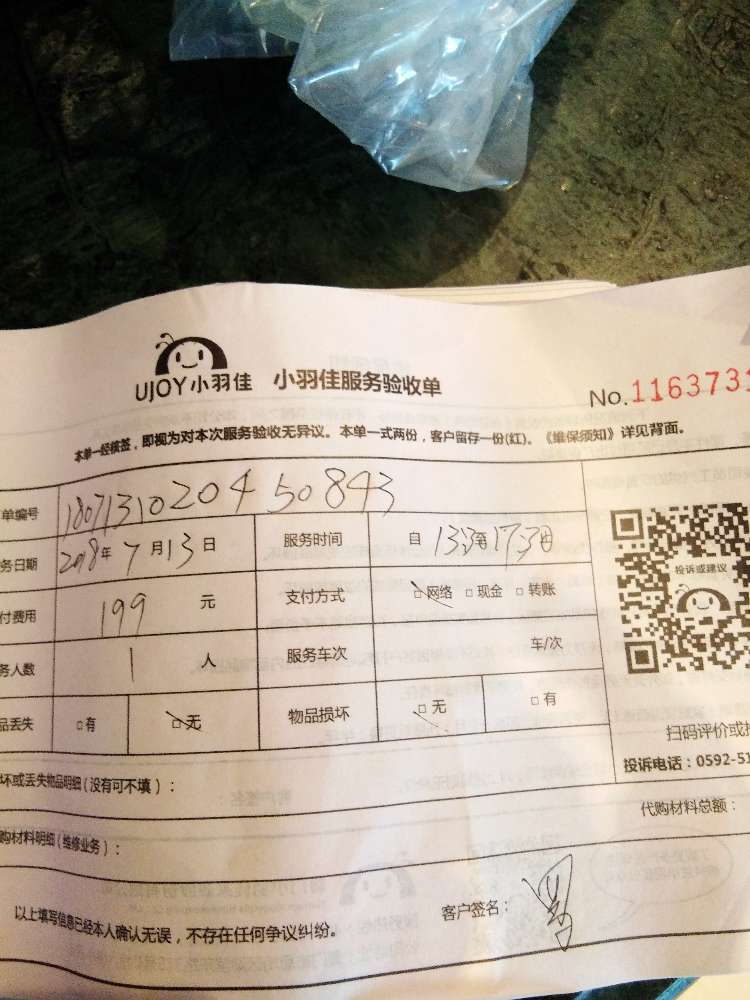 UJOY小羽佳 小羽佳服务验收单
No.1163731
本单一经核签，即视为对本次服务验收无异议。本单一式两份，客户留存一份(红)。《维保须知》详见背面。
单编号 180713102045 0843
务日期 2018年7月13日 服务时间 自 13:30至17:30止
付费用 199 元 支付方式 □网络 □现金 □转账
务人数 1 人 服务车次 车/次
品丢失 □有 □无 物品损坏 □无 □有
投诉或建议
扫码评价或
投诉电话：0592-51
坏或丢失物品明细(没有可不填)：
代购材料总额：
购材料明细(维修业务)：
以上填写信息已经本人确认无误，不存在任何争议纠纷。
客户签名：